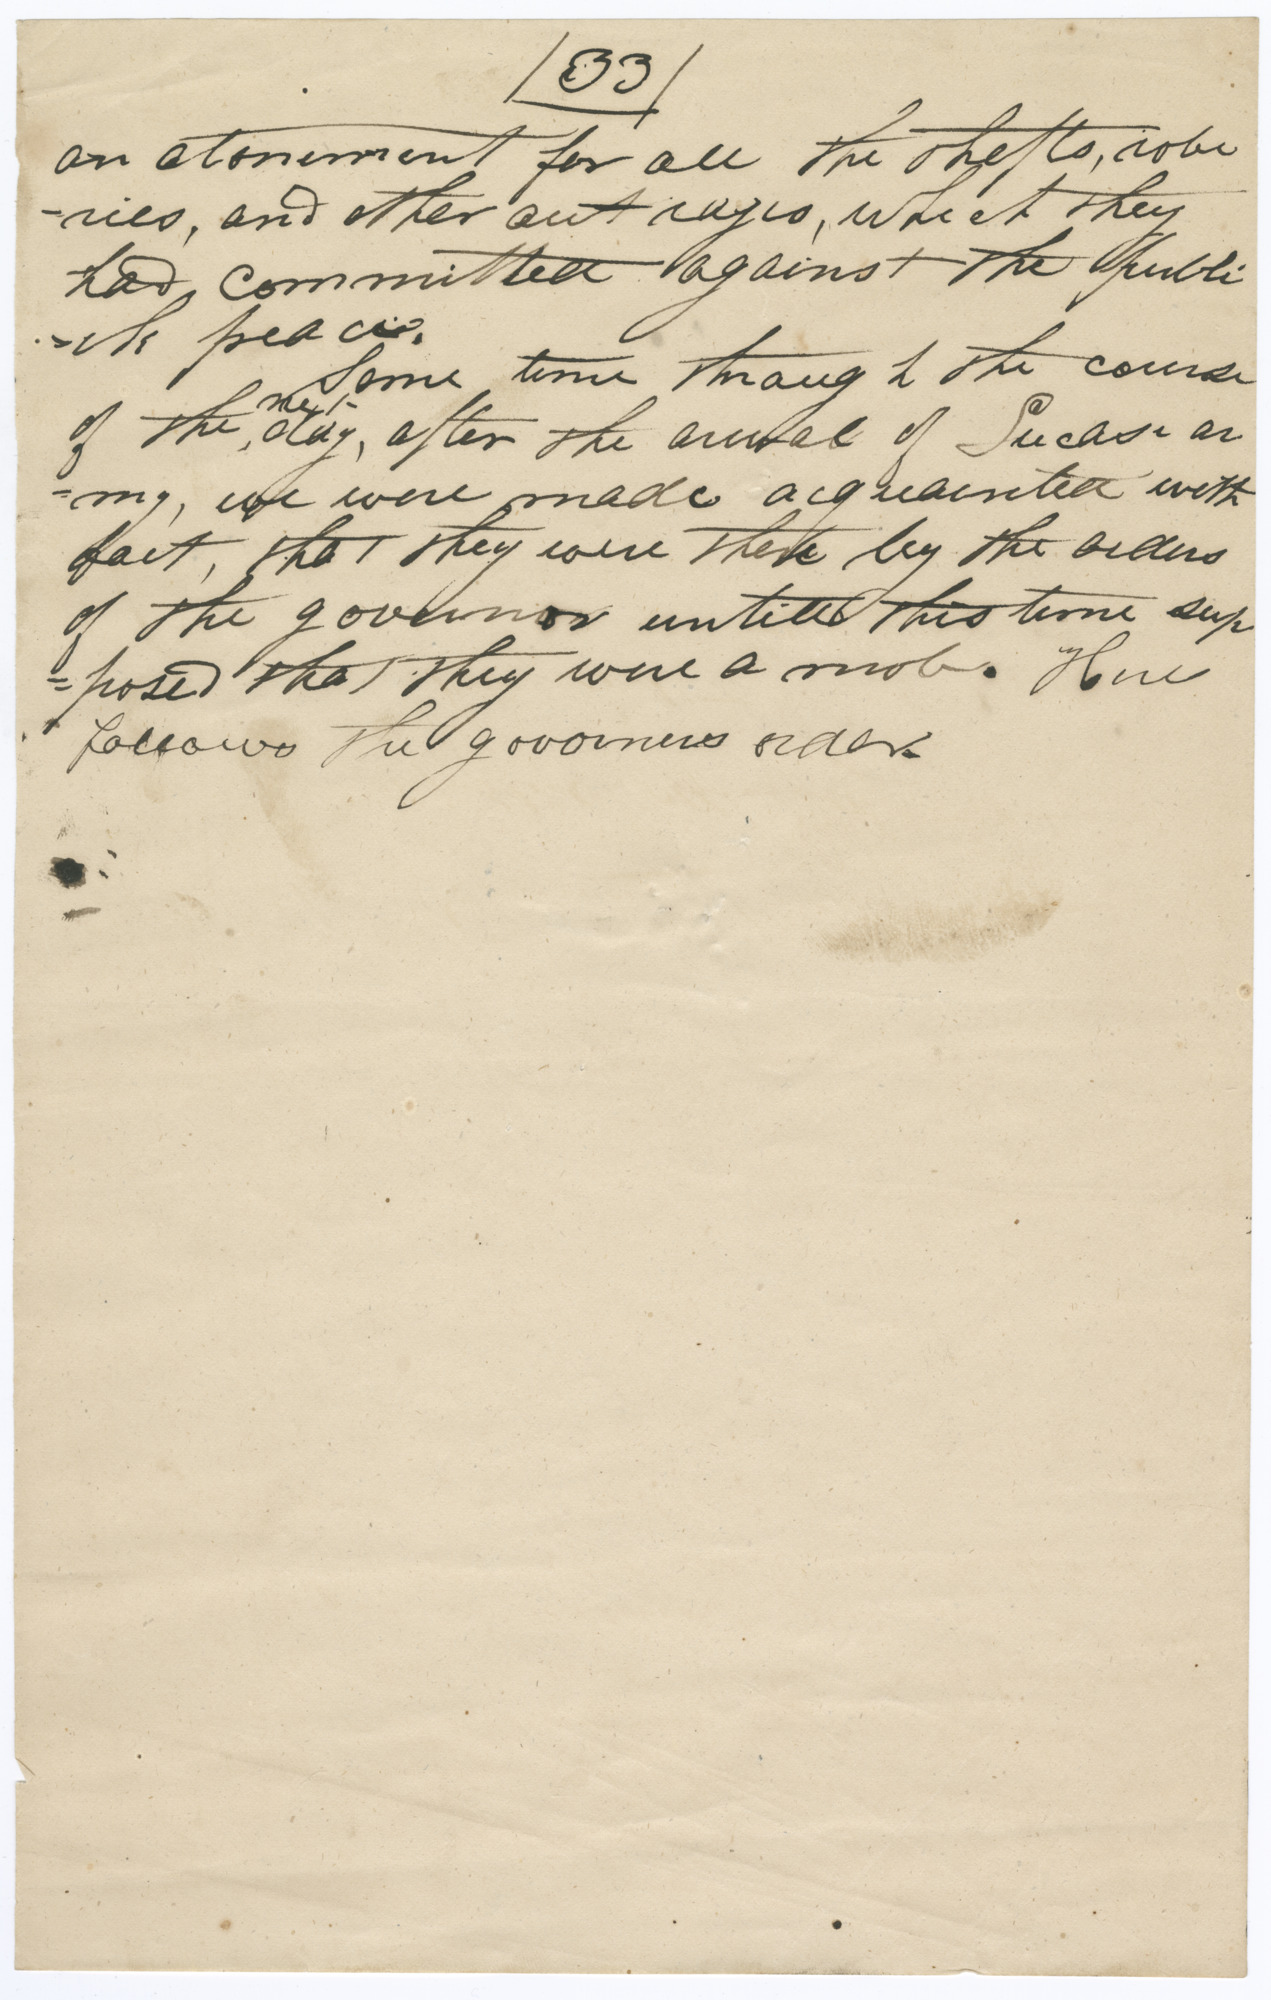 /33/
an atonement for all the thefts, robe
-ries, and other out rages, which they
had committed against the publi
=ck peace.
Some time through the course
of the next day, after the arrival of Lucase ar
=my, we were made acquainted with
fact, that they were there by the orders
of the governor untill this time sup
=posed that they were a mob. Here
follows the governers order.